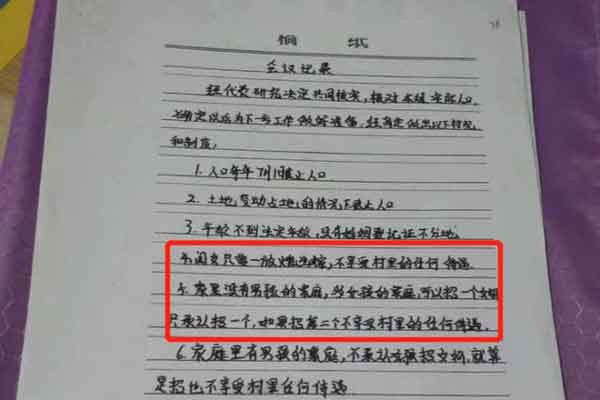 稿 纸
会议记录
经代表研究决定共同核实，核对本组实际人口，
确定以后为下一步工作做好准备，经商定做出以下情况
和制度：
1. 人口每年7月1日截止人口
2. 土地变动占地，的情况下截止人口
3. 年龄不到法定年龄，没有结婚登记证不分地。
4. 闺女只要一放炮出嫁，不享受村里的任何待遇
5. 家里没有男孩的家庭，多女孩的家庭，可以招一个女婿
只承认招一个，如果招第二个不享受村里的任何待遇。
6. 家庭里有男孩的家庭，不承认招女婿，就算
是招也不享受村里任何待遇